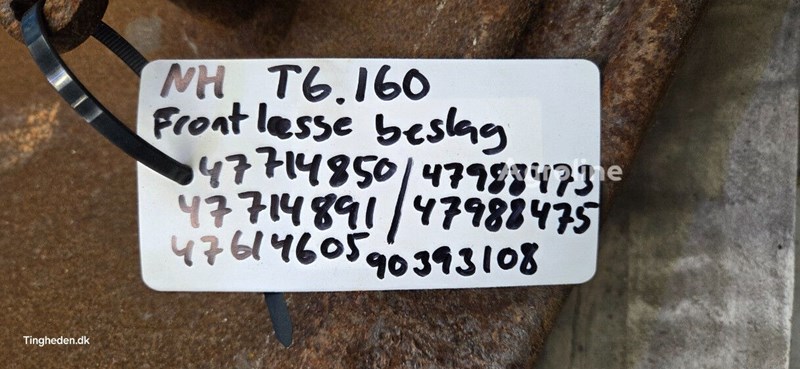 NH T6.160
Frontlæsse beslag
47714850 / 47988473
47714891 / 47988475
47614605 90393108
Agroline
Tingheden.dk